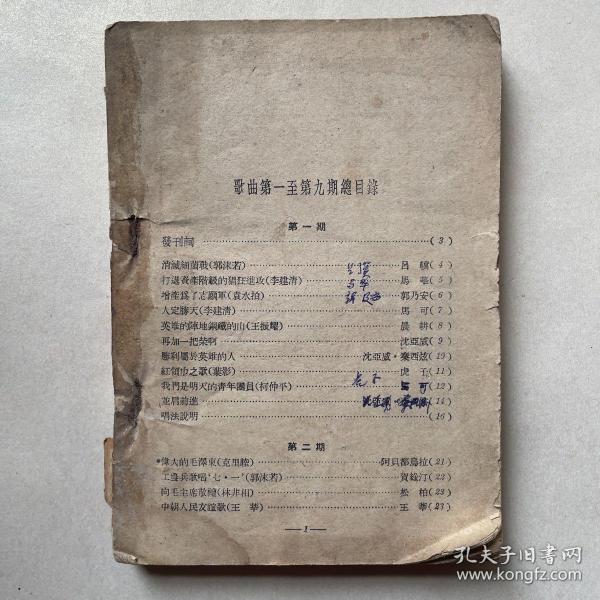 歌曲第一至第九期總目錄
第一期
發刊詞……(3)
消滅細菌戰(郭沫若)……呂驥(4)
打退資產階級的猖狂進攻(李建清)……馬(5)
增產爲了志願軍(袁水拍)……郭乃安(6)
人定勝天(李建清)……馬可(7)
英雄的陣地鋼鐵的山(王振耀)……晨耕(8)
再加一把柴啊……沈亞威(9)
勝利屬於英雄的人……沈亞威·秦西炫(10)
紅領巾之歌(葉影)……虎子(11)
我們是明天的青年團員(柯仲平)……馬可(12)
並肩前進……(14)
唱法說明……(16)
第二期
*偉大的毛澤東(克里木)……阿貝都烏拉(21)
工農兵歌唱“七·一”(郭沫若)……賀綠汀(22)
向毛主席敬禮(林非相)……松柏(22)
中朝人民友誼歌(王莘)……王莘(23)
—1—
孔夫子旧书网
www.kongfz.com